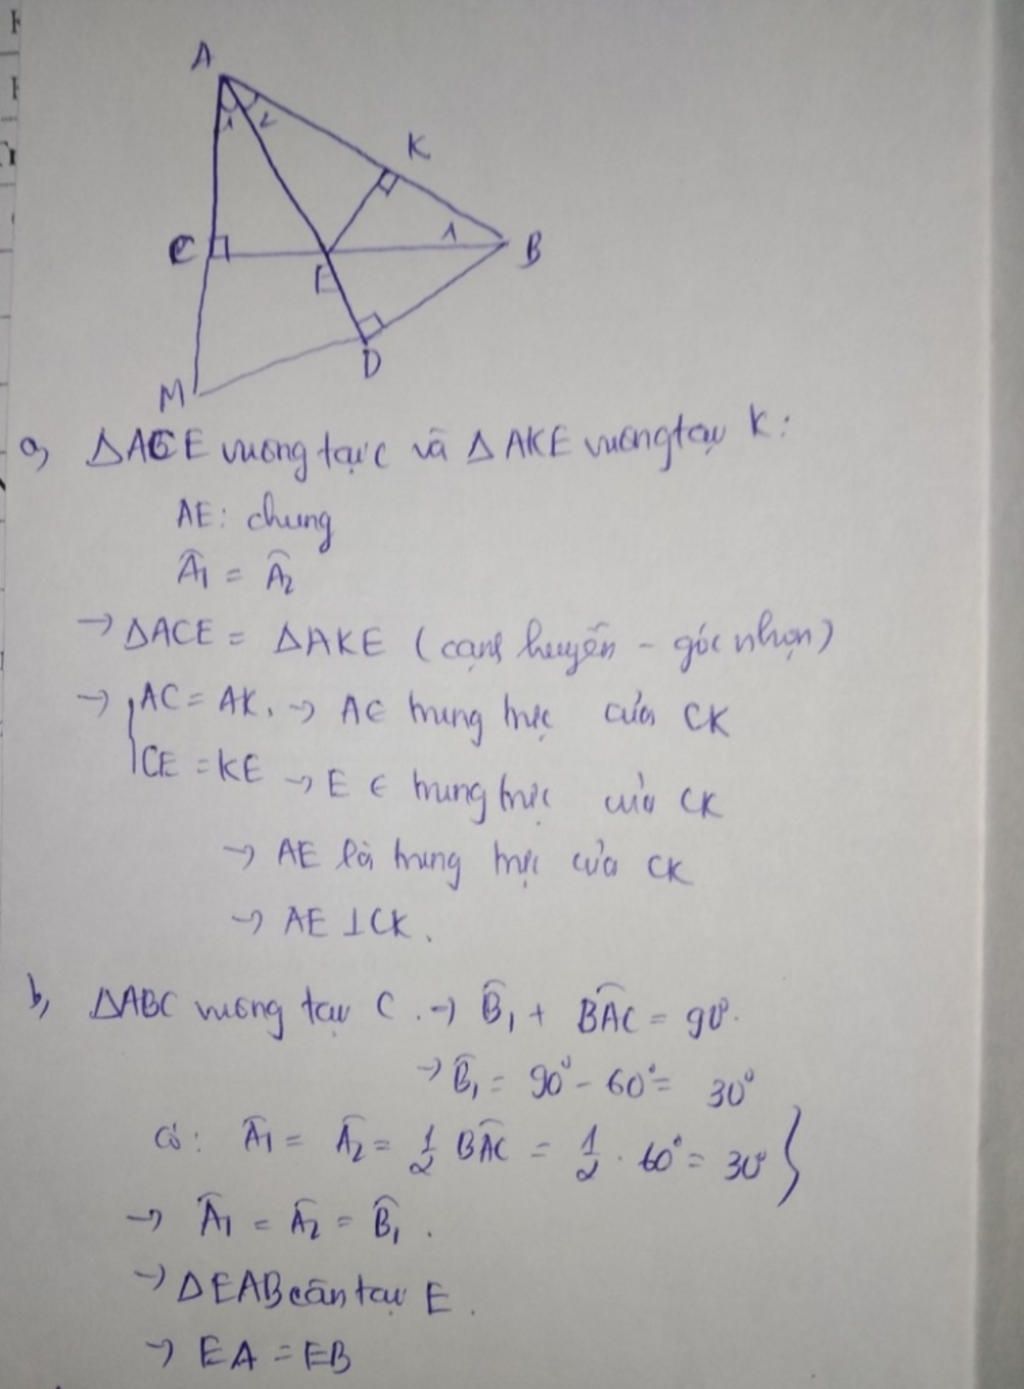 A
1 2
K
C
1
B
E
D
M
a, ΔACE vuông tại C và ΔAKE vuông tại K:
AE: chung
Â1 = Â2
→ ΔACE = ΔAKE (cạnh huyền - góc nhọn)
→ { AC = AK. → A ∈ trung trực của CK
CE = KE → E ∈ trung trực của CK
→ AE là trung trực của CK
→ AE ⊥ CK.
b, ΔABC vuông tại C. → B̂1 + BÂC = 90°.
→ B̂1 = 90° - 60° = 30°
Có: Â1 = Â2 = 1/2 BÂC = 1/2 . 60° = 30° }
→ Â1 = Â2 = B̂1.
→ ΔEAB cân tại E.
→ EA = EB